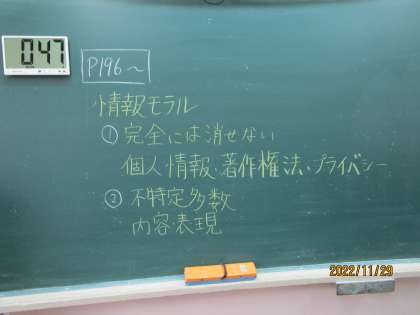 047
P196~
情報モラル
①完全には消せない
個人情報・著作権法・プライバシー
②不特定多数
内容・表現
2022/11/29